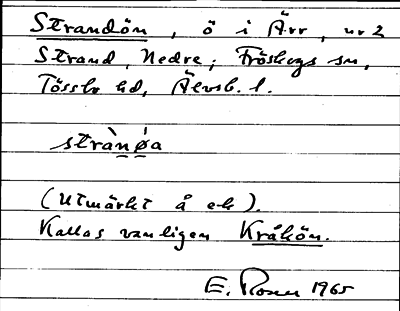 Strandön, ö i Ärr, nr 2
Strand, Nedre, Fröskogs sn,
Tössbo hd, Älvsb. l.
strànǿa
(Utmärkt å ek).
Kallas vanligen Kråkön.
E. Rosen 1965